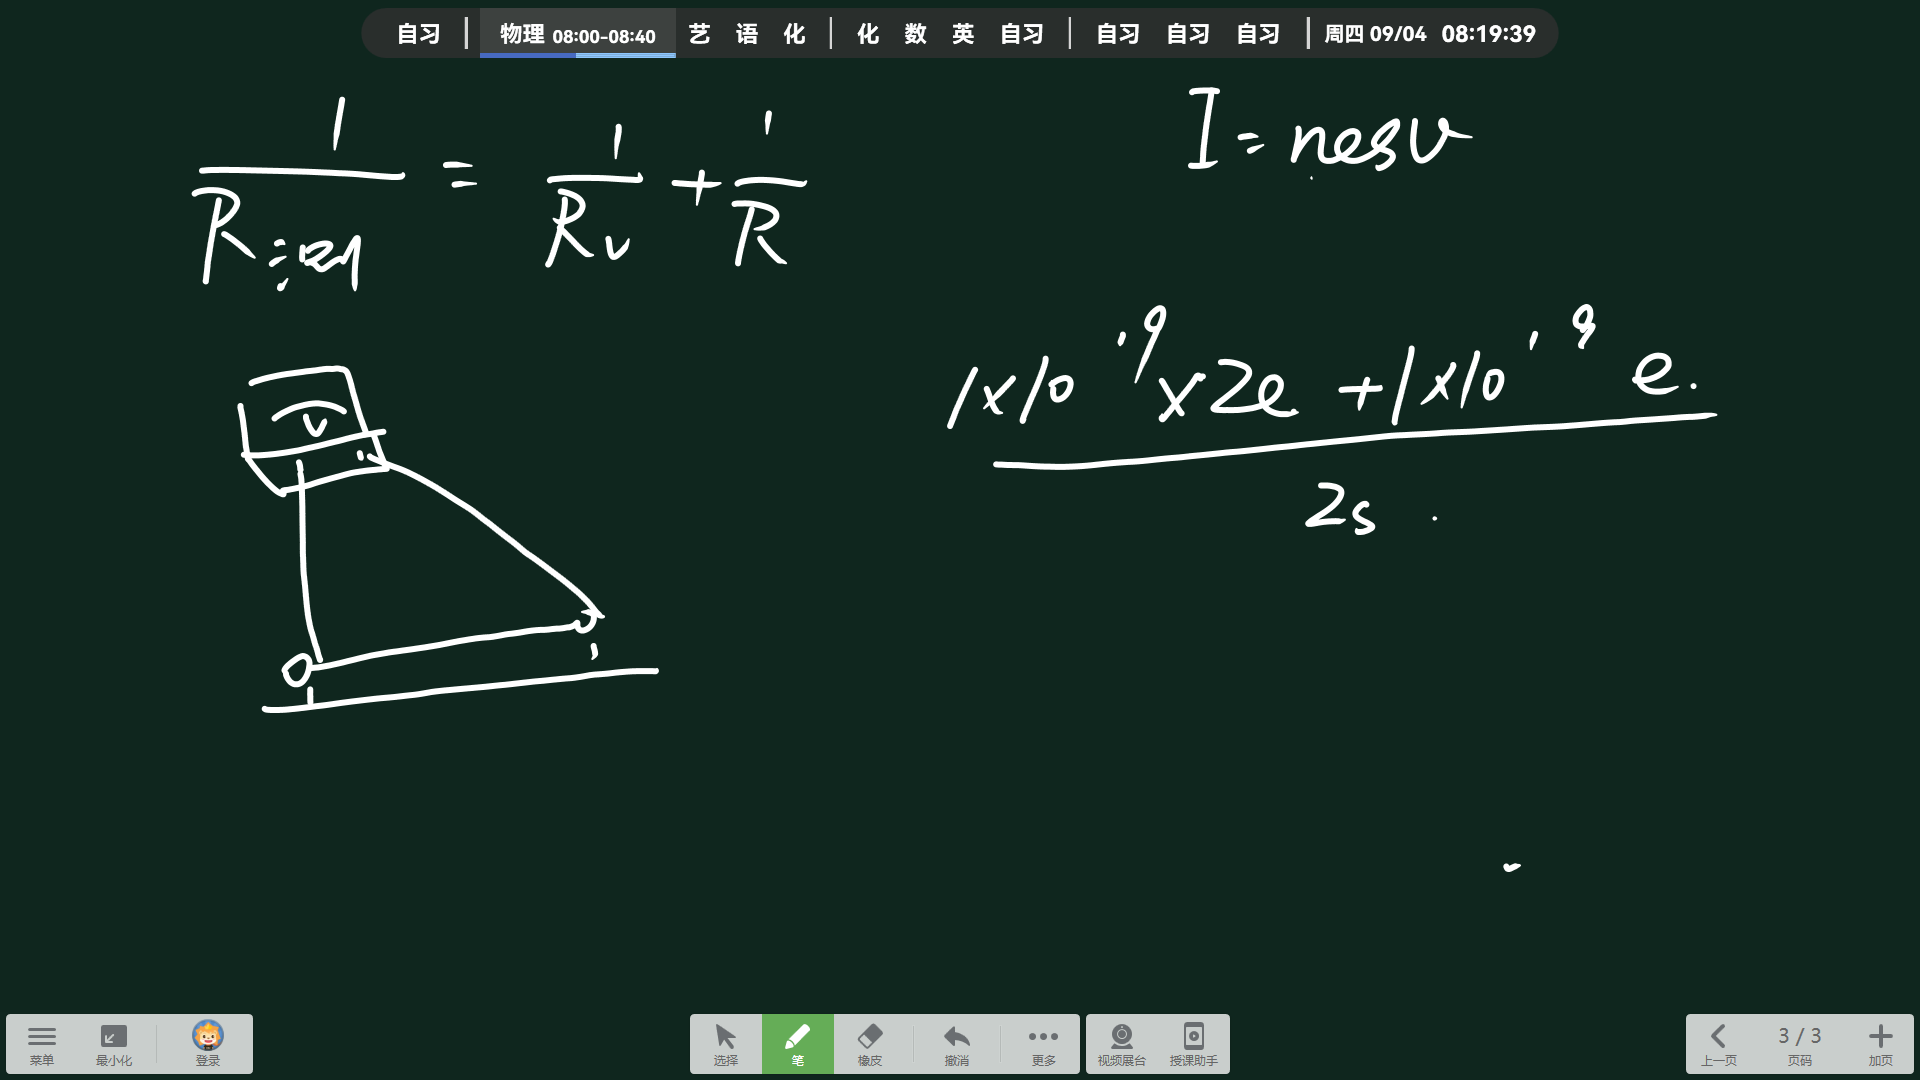 自习 | 物理 08:00-08:40 艺 语 化 | 化 数 英 自习 | 自习 自习 自习 | 周四 09/04 08:19:39
1/R测 = 1/Rv + 1/R
I = nesv
V
1×10^19 × 2e + 1×10^19 e.
2s
菜单 最小化 登录 选择 笔 橡皮 撤消 更多 视频展台 授课助手 上一页 3 / 3 页码 加页